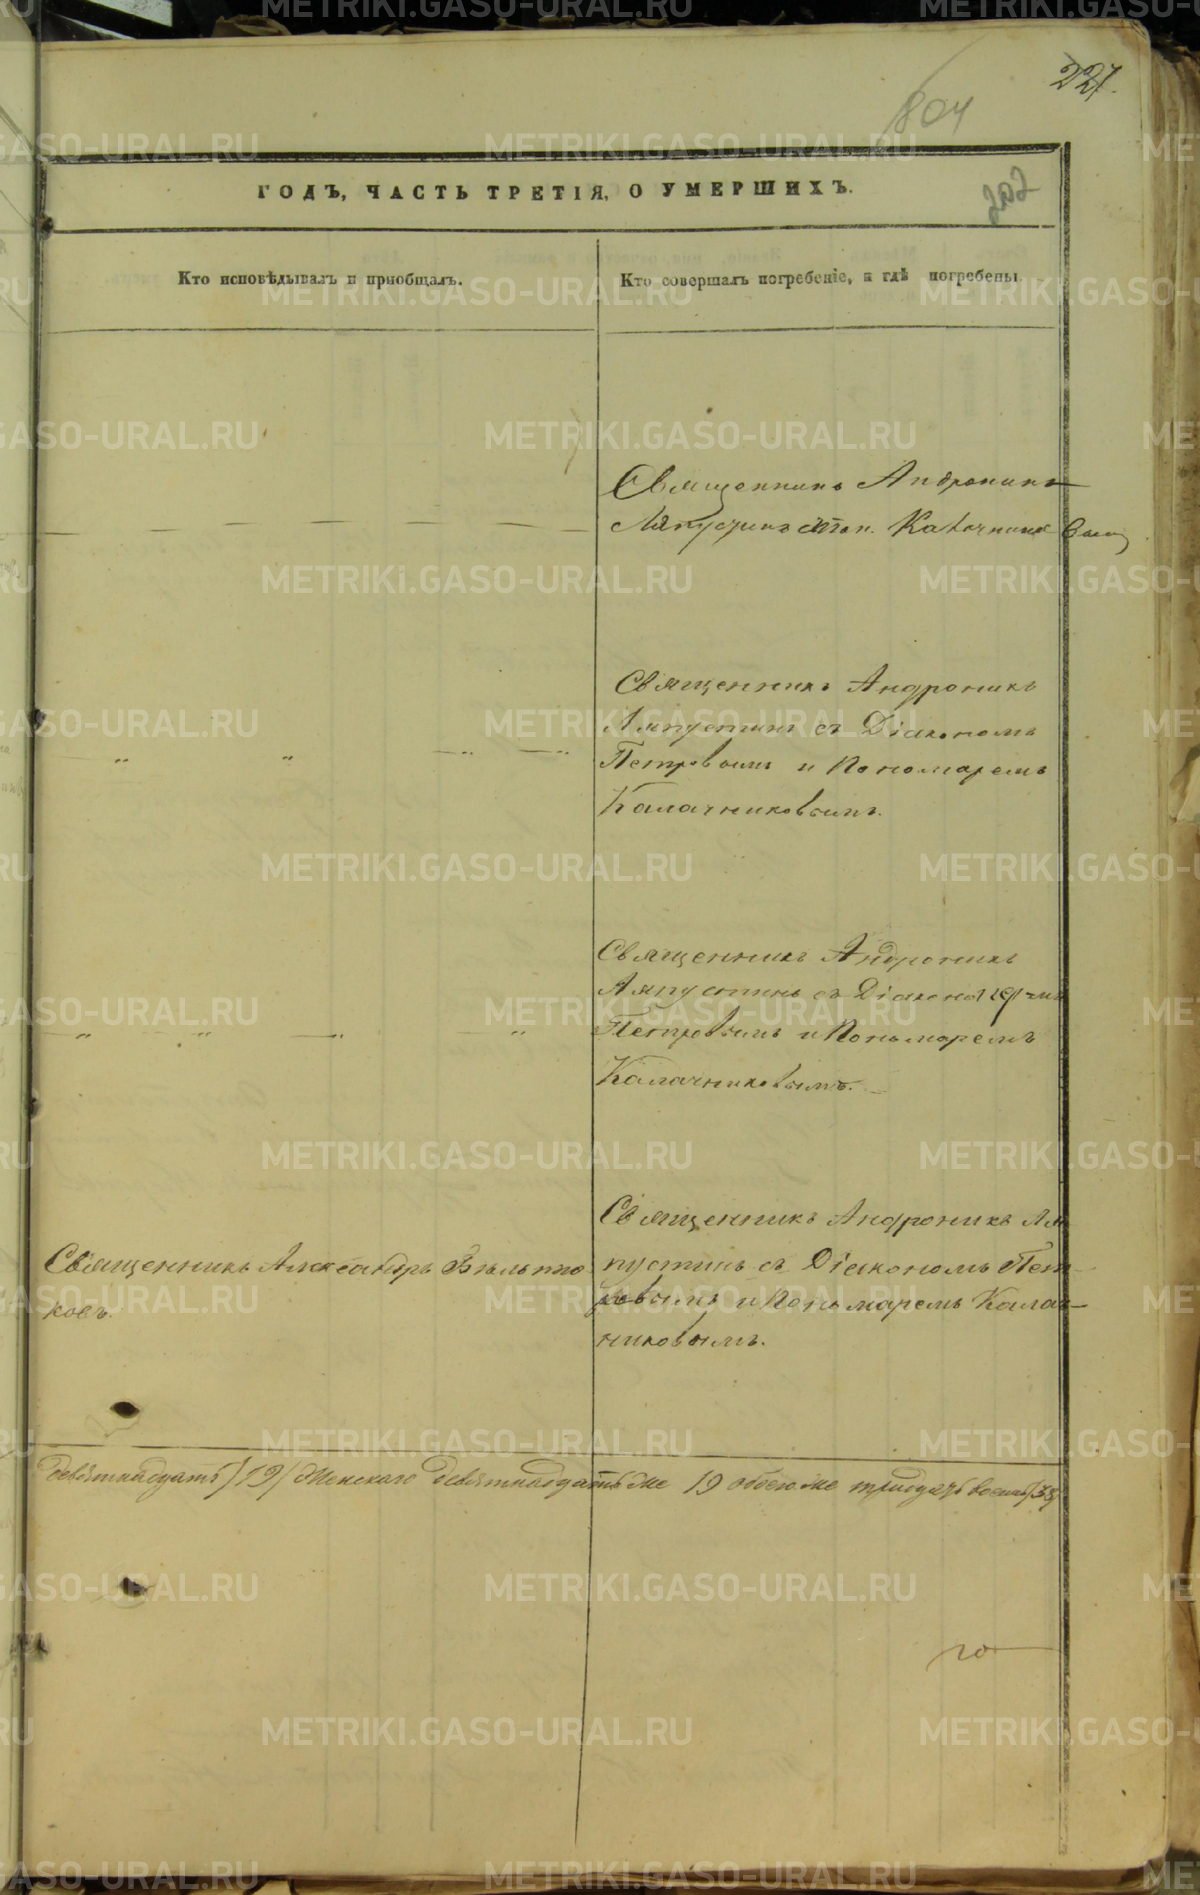 227.
804
202
ГОДЪ, ЧАСТЬ ТРЕТІЯ, О УМЕРШИХЪ.
Кто исповѣдывалъ и пріобщалъ.
Кто совершалъ погребеніе, и гдѣ погребены.
Священникъ Андроникъ
Ляпустинъ
Священникъ Андроникъ
Ляпустинъ съ Діакономъ
Петровымъ и Пономаремъ
Калачниковымъ.
Священникъ Андроникъ
Ляпустинъ съ Діакономъ
Петровымъ и Пономаремъ
Калачниковымъ.
Священникъ Александръ
ковъ.
Священникъ Андроникъ Ля
пустинъ съ Діакономъ Пет-
ровымъ и Пономаремъ Калач-
никовымъ.
девятнадцать /19/ Женскаго девятнадцать же 19 обоего же тридцать восемь /38/
METRIKI.GASO-URAL.RU